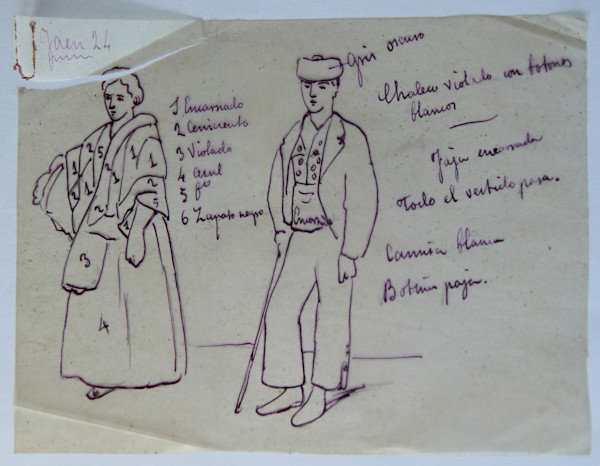 Jaen 24
1 Encarnado
2 Ceniciento
3 Violado
4 azul
5
6 Zapato negro
gris oscuro
Chaleco violado con botones
blancos
Faja encarnada
Todo el vestido pasa.
Camisa blanca
Botin paja.
1
2
5
1
1
1
2
1
2
2
5
1
3
4